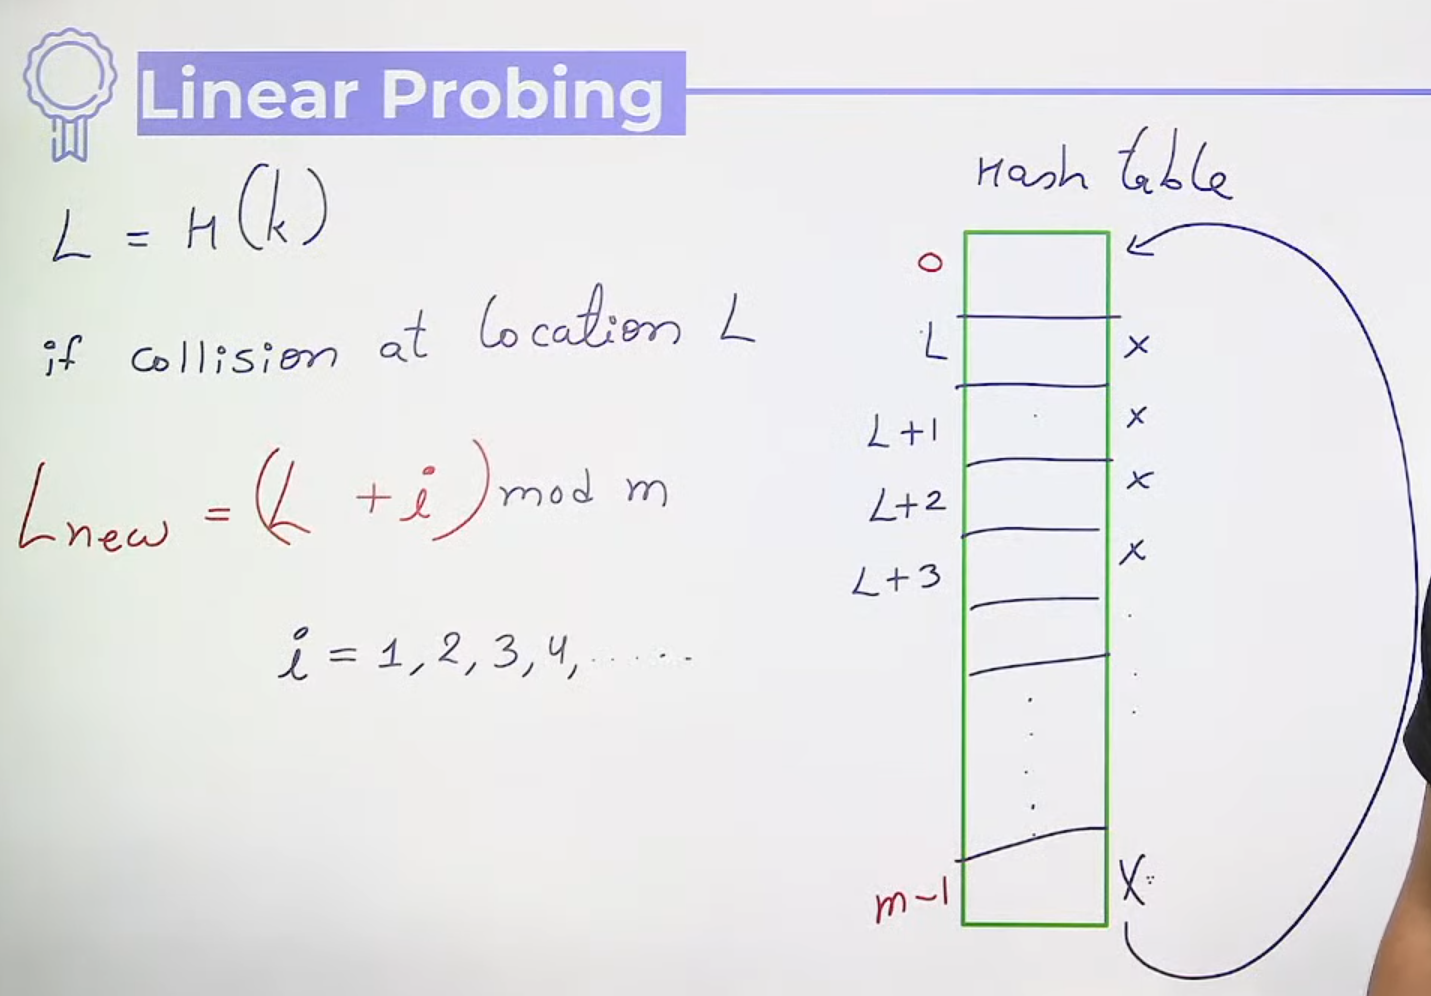 Linear Probing
L = H(k)
if collision at location L
Lnew = (L + i) mod m
i = 1, 2, 3, 4, ......
Hash table
0
L x
L+1 x
L+2 x
L+3 x
m-1 X